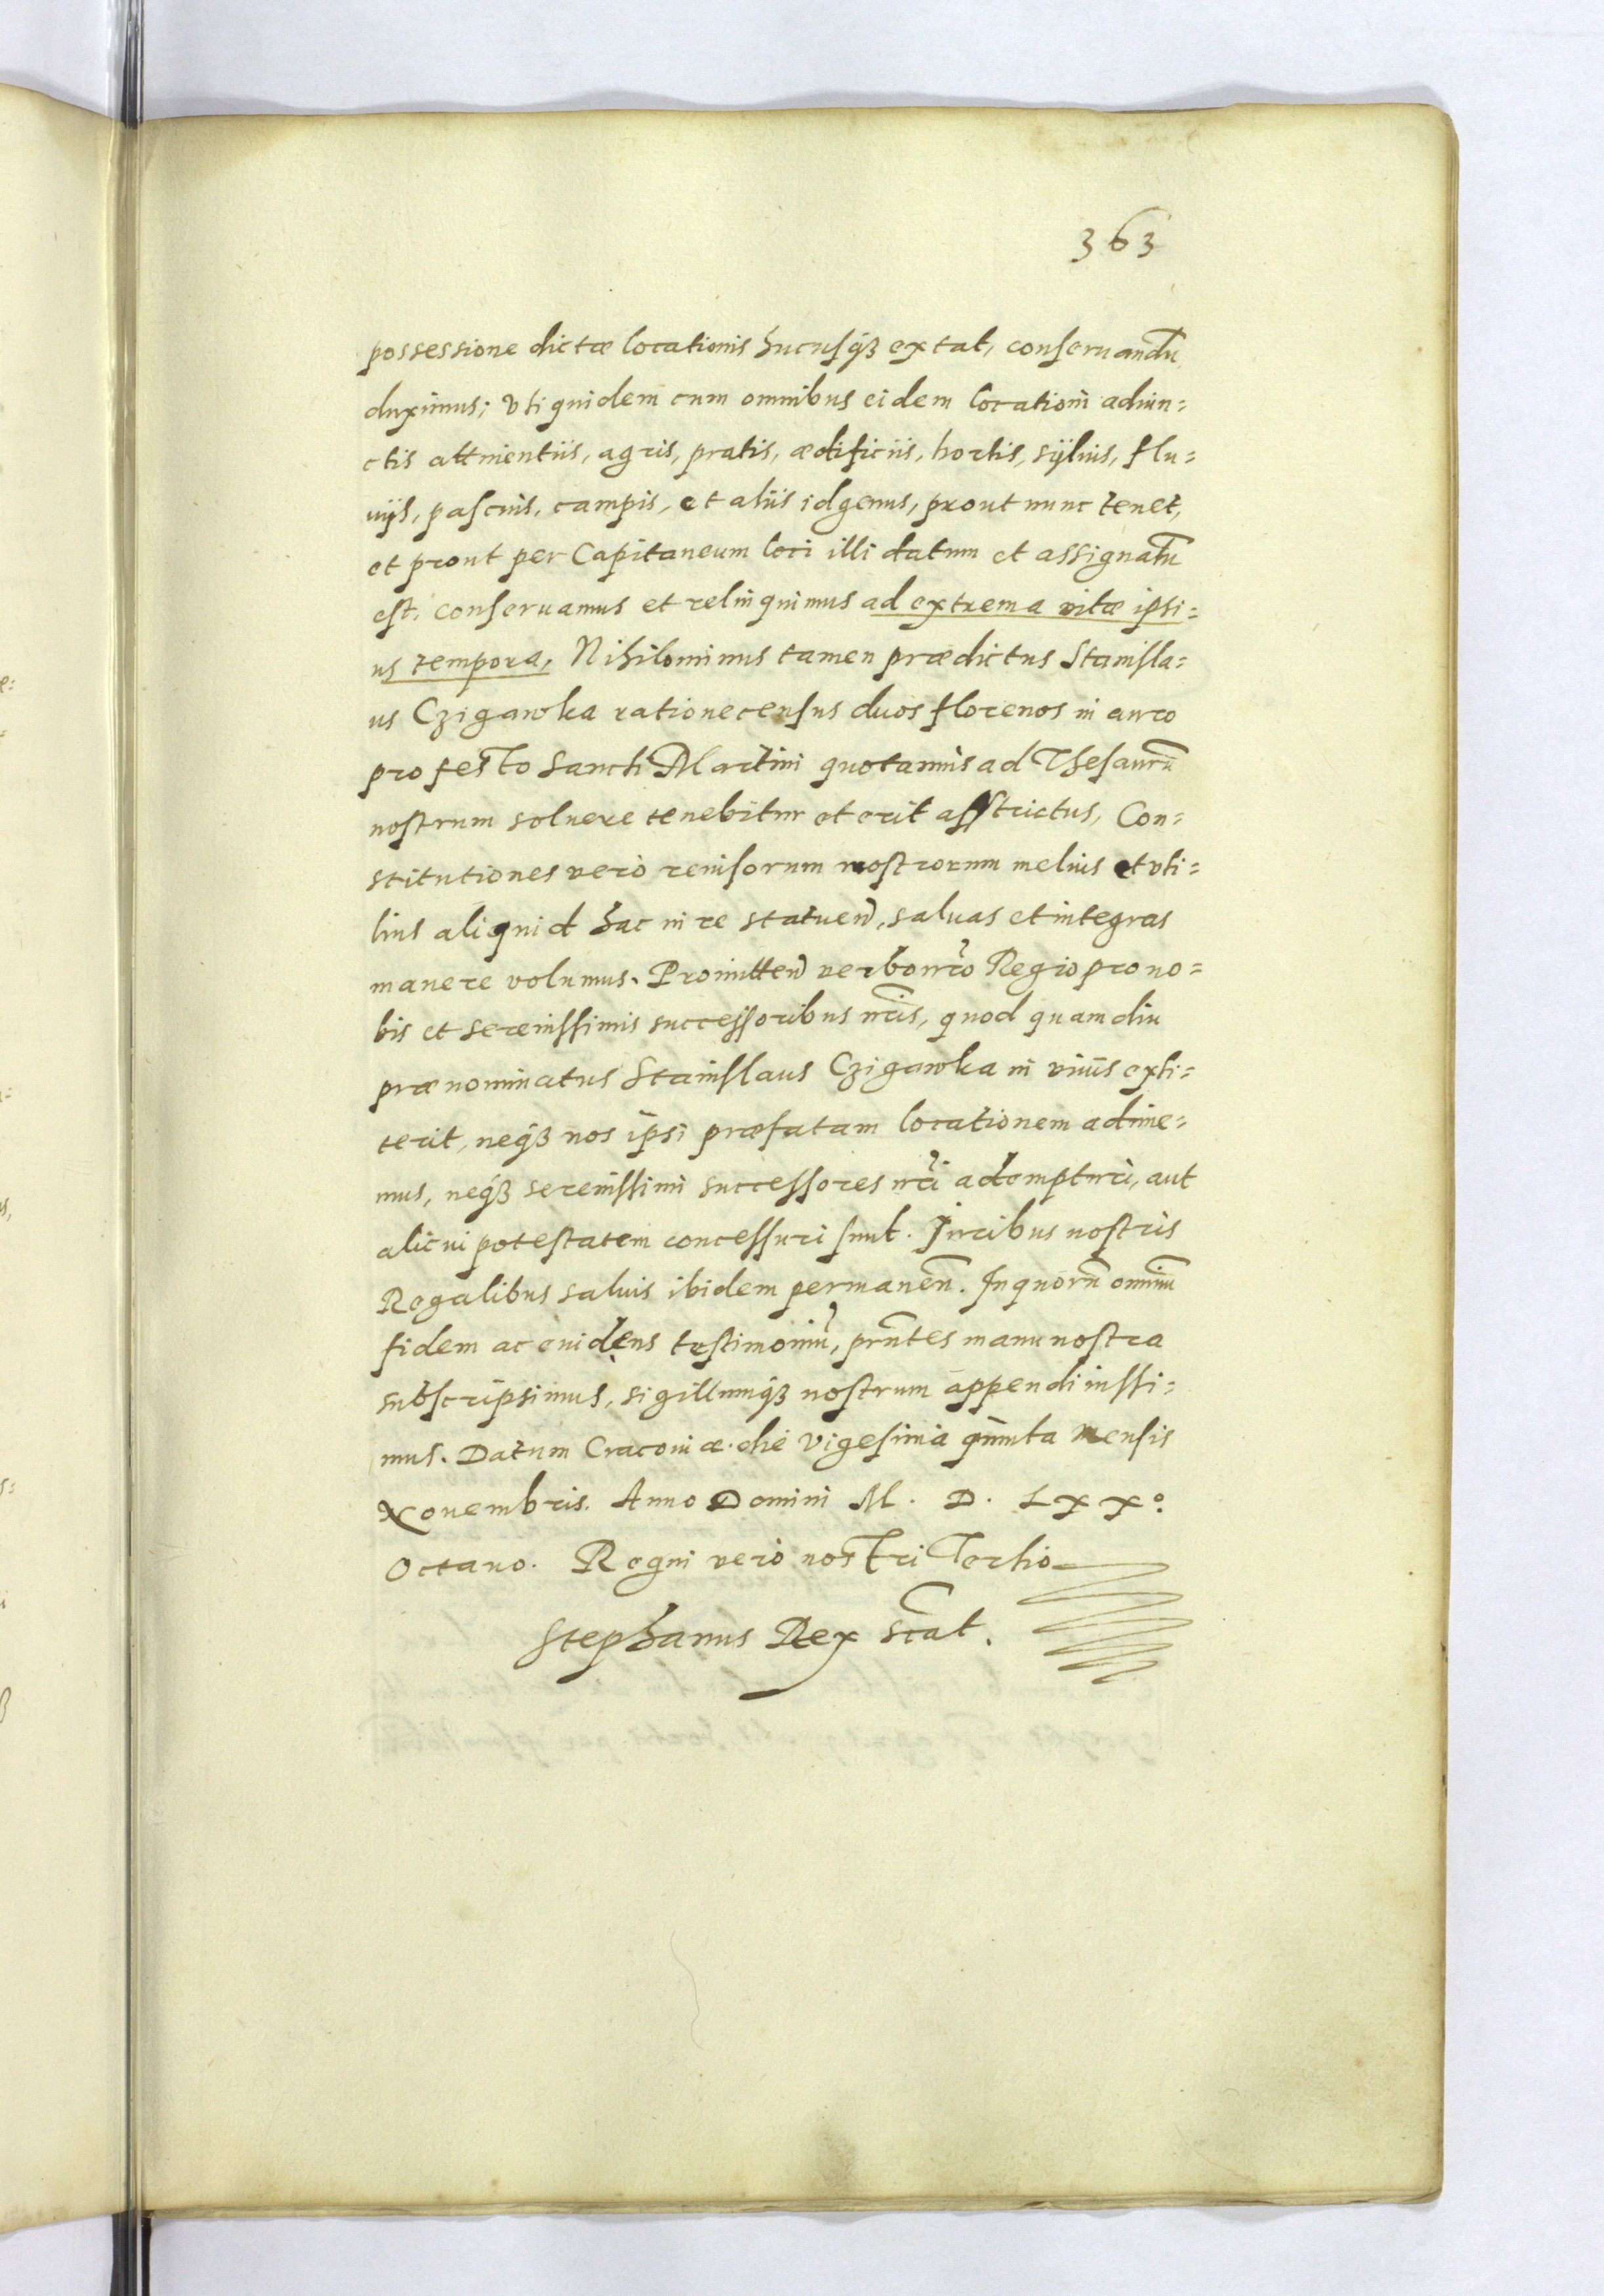 363
possessione dictæ locationis hucusq₃ extat, conseruandũ
duximus; Vti quidem cum omnibus eidem locationi adiun=
ctis attinentiis, agris, pratis, ædificiis, hortis, sÿluis, flu=
uijs, pascuis, campis, et aliis id genus, prout nunc tenet,
et prout per Capitaneum loci illi datum et assignatũ
est, conseruamus et relinquimus ad extrema vitæ ipsi=
us tempora, Nihilominus tamen prædictus Stanisla=
us Czigawka ratione census duos florenos in auro
pro festo Sancti Martini quotannis ad Thesaurũ
nostrum soluere tenebitur et erit asstrictus, Con=
stitutiones verò reuisorum nostrorum melius et vti=
lius aliquid hac in re statuen̄, saluas et integras
manere volumus. Promitten̄ verbo nr̃o Regio pro no=
bis et serenissimis successoribus nr̃is, quod quamdiu
prænominatus Stanislaus Czigawka in viuis exti=
terit, neq₃ nos ipsi præfatam locationem adime=
mus, neq₃ serenissimi successores nr̃i adempturi, aut
alicui potestatem concessuri sunt. Juribus nostris
Regalibus saluis ibidem permanen̄. In quorũ omniũ
fidem ac euidens testimoniũ, prñtes manu nostra
subscripsimus, sigillumq₃ nostrum appendi iussi=
mus. Datum Cracouiæ. die Vigesima quinta mensis
Nouembris. Anno Domini M. D. Lxxº.
Octauo. Regni verò nostri Tertio
Stephanus Rex sc̃at.